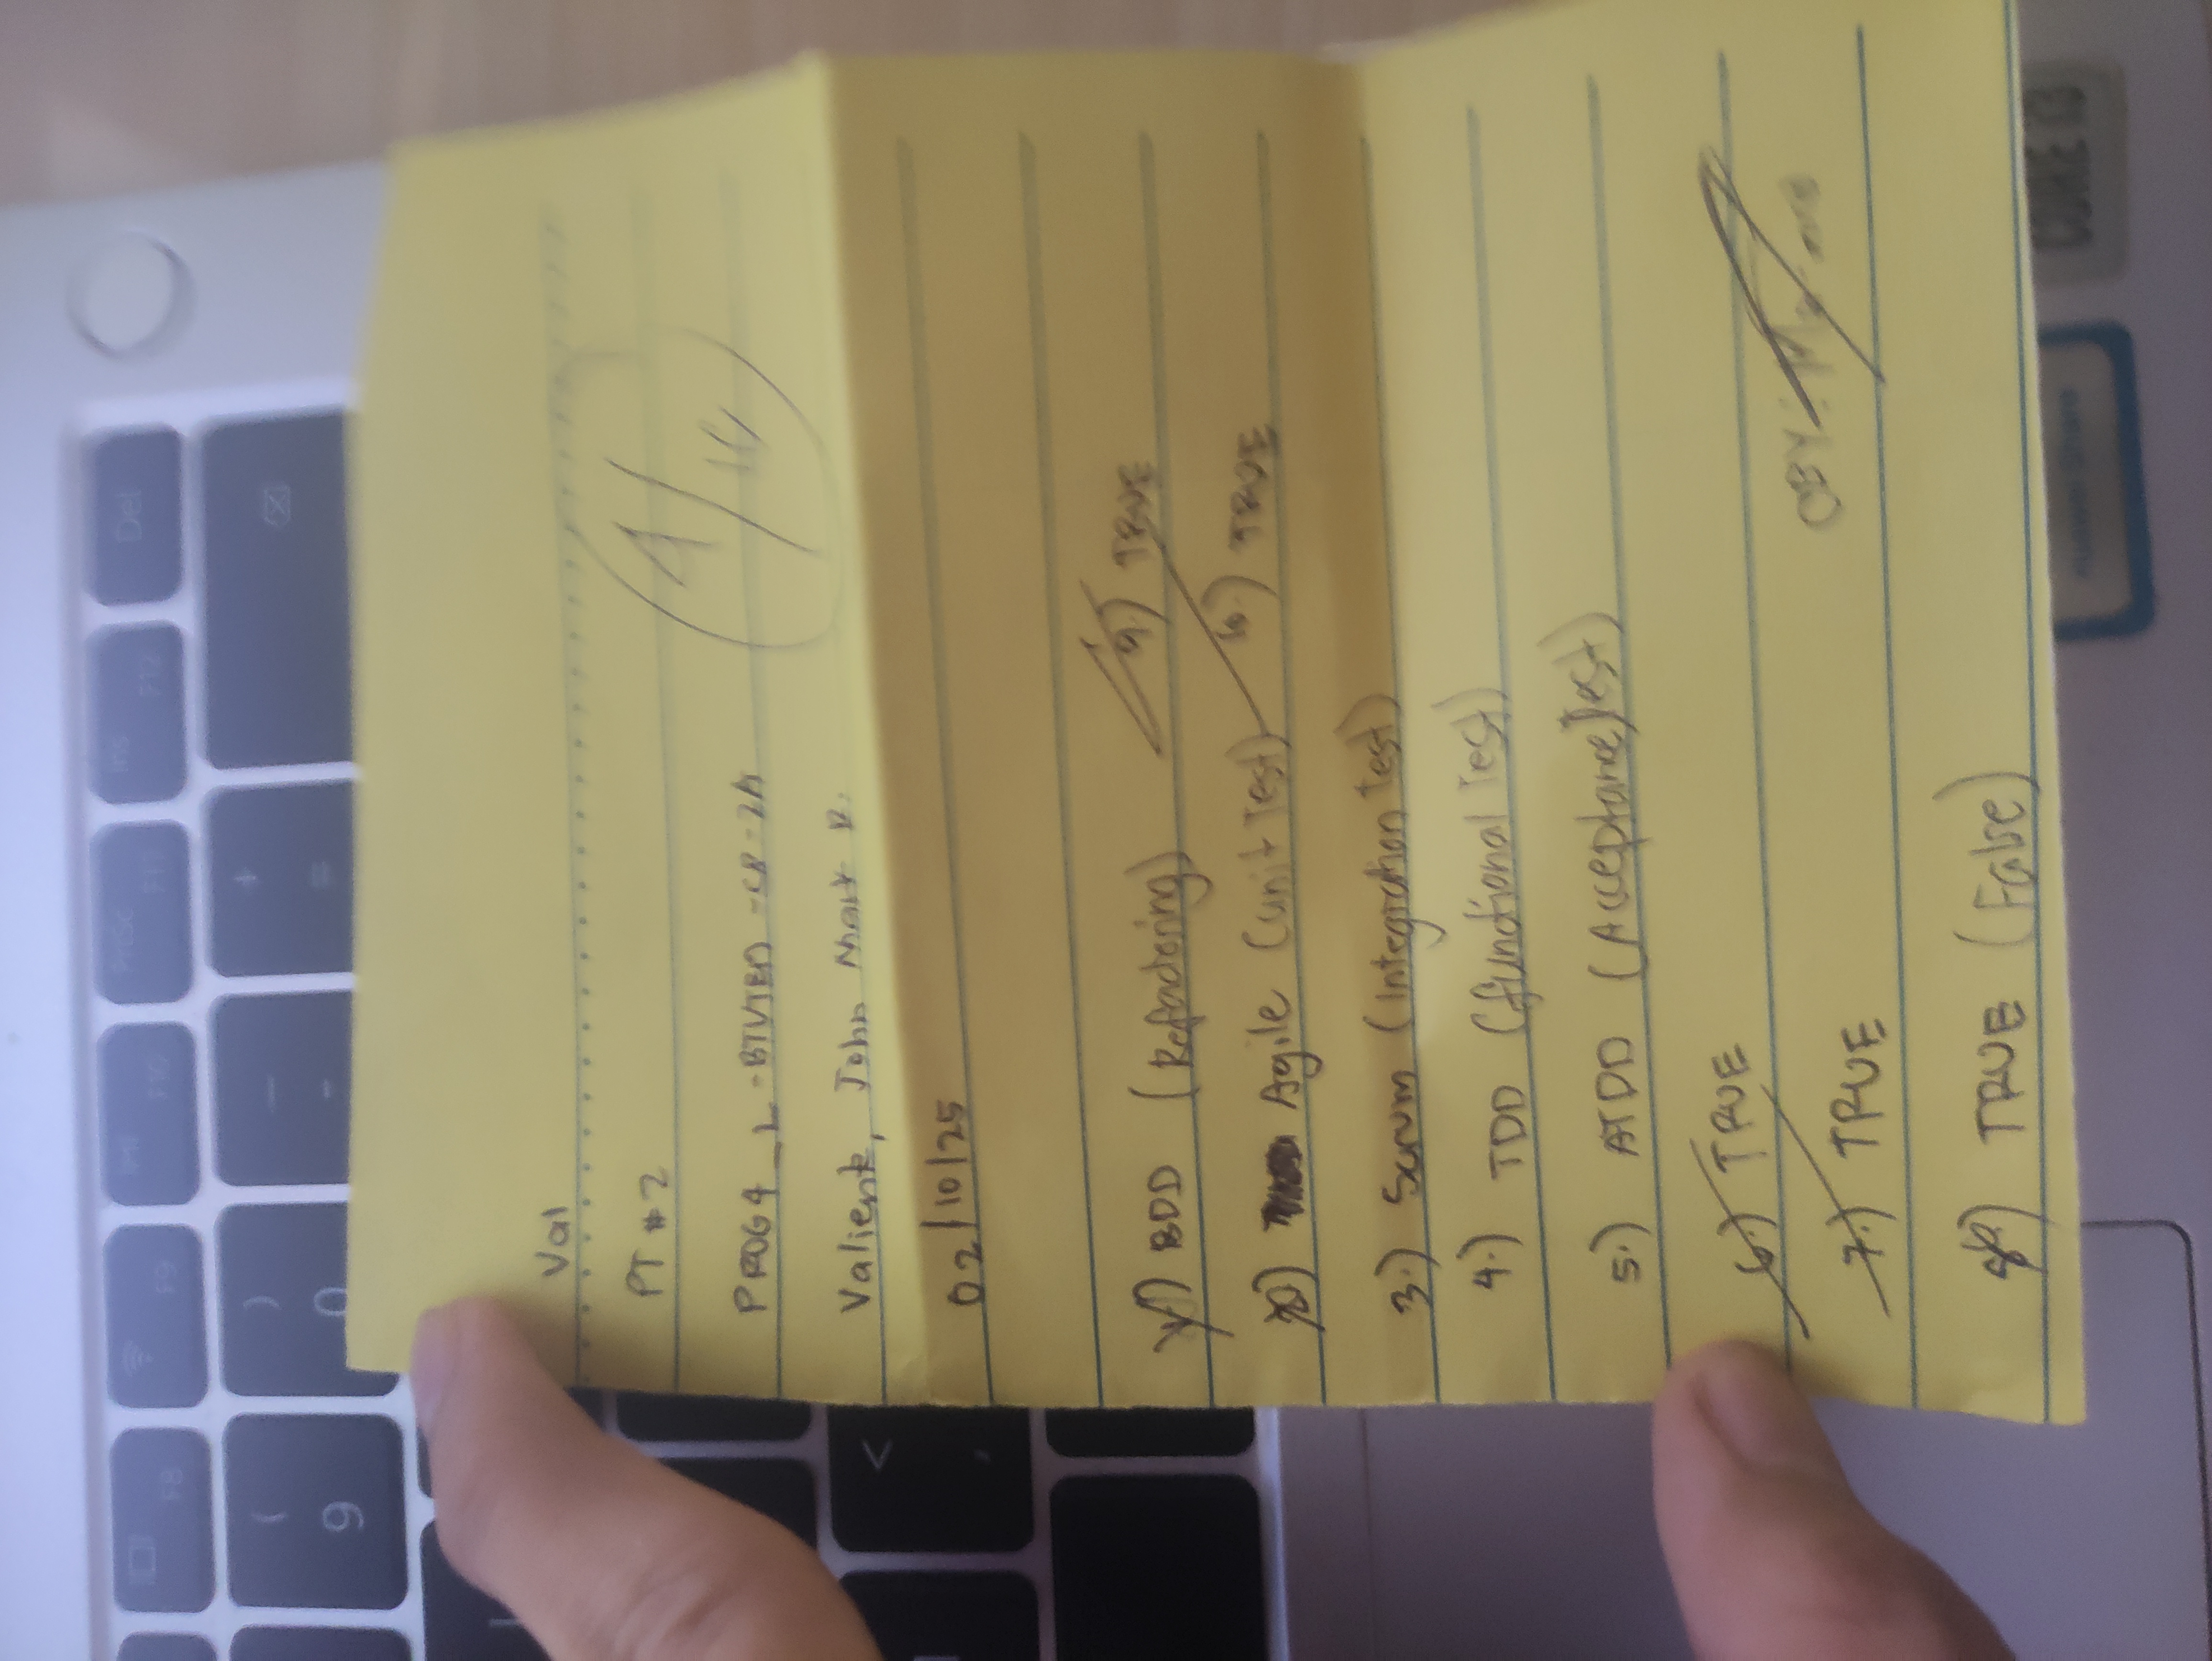 F8
F9
F10
PrtSc
F11
Ins
F12
Del
(
9
)
0
—
-
+
=
<
,
Val
PT #2
4/10
PROG4_L-BTVTED-CP-2A
Valiente, John Mark R.
02/10/25
1) BDD (Refactoring)
9.) TRUE
2) Agile (unit Test)
10.) TRUE
3.) Scrum (Integration Test)
4.) TDD (functional Test)
5.) ATDD (Acceptance Test)
6.) TRUE
7.) TRUE
CBY:
8.) TRUE (False)
Huawei Share
CORE i3